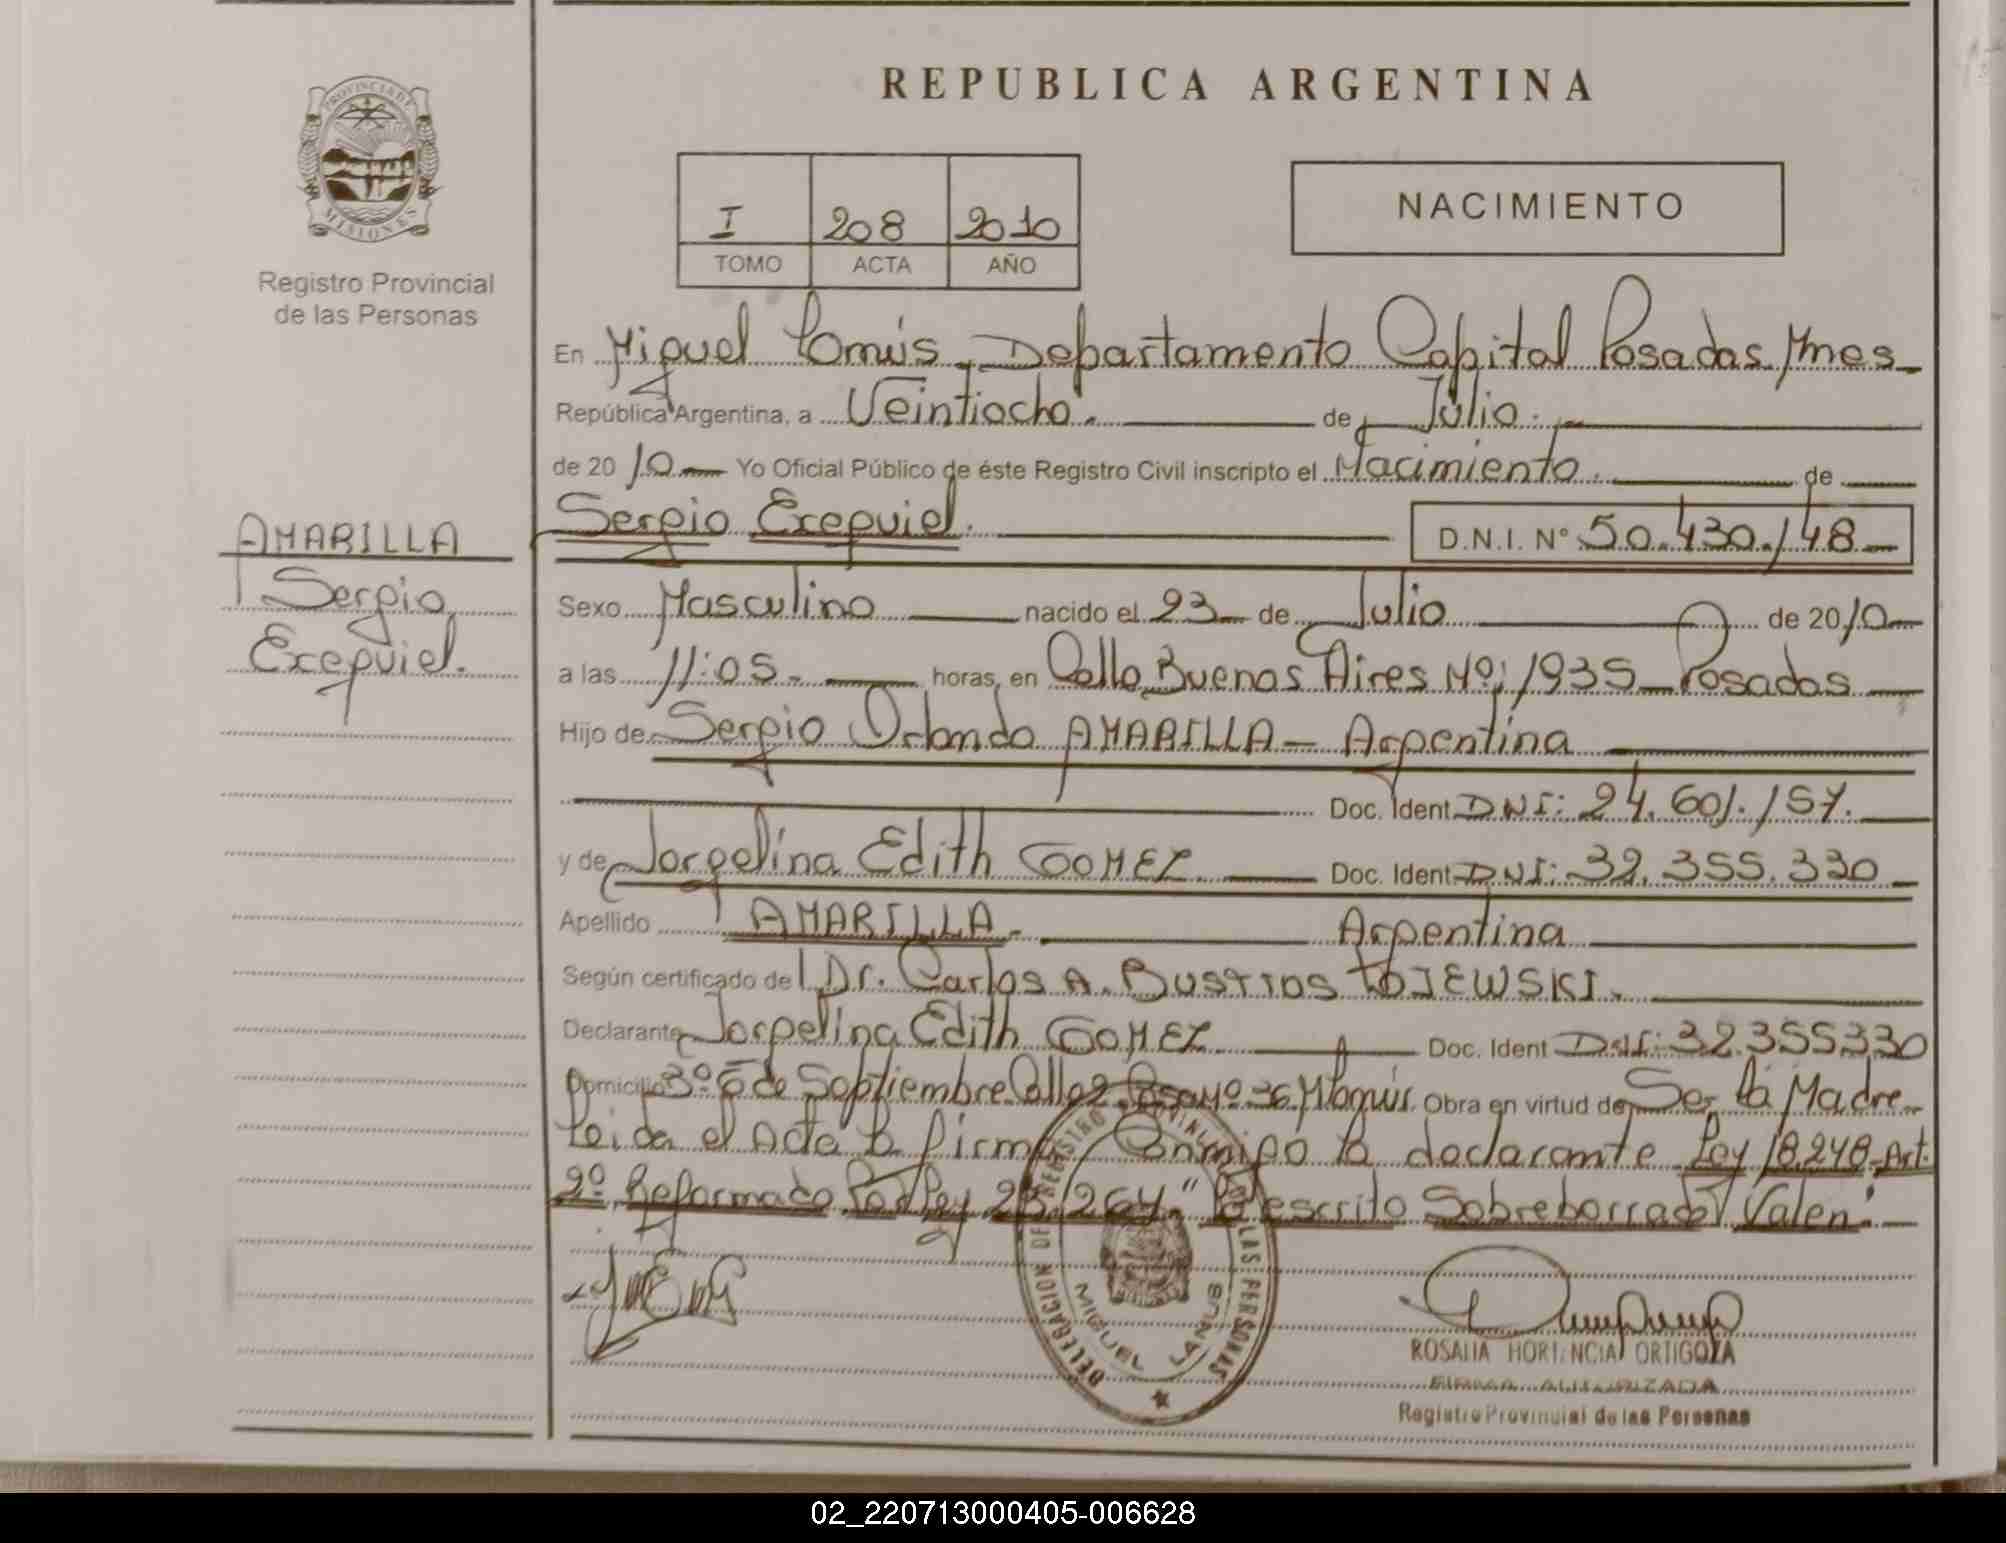 REPUBLICA ARGENTINA
PROVINCIA DE MISIONES
Registro Provincial
de las Personas
I 208 2010
TOMO ACTA AÑO
NACIMIENTO
En Miguel Lanús, Departamento Capital Posadas Mnes
República Argentina, a Veintiocho. de Julio.
de 2010 Yo Oficial Público de éste Registro Civil inscripto el Nacimiento. de
Sergio Exequiel. D.N.I. N° 50.430.148
AMARILLA
Sergio
Exequiel.
Sexo Masculino nacido el 23 de Julio de 2010
a las 11:05. horas, en Calle Buenos Aires Nº: 1935 Posadas
Hijo de Sergio Orlando AMARILLA - Argentina
Doc. Ident DNI: 24.601.157.
y de Jorgelina Edith GOMEZ Doc. Ident DNI: 32.355.330
Apellido AMARILLA. Argentina
Según certificado del Dr. Carlos A. BUSTIOS LOJEWSKI.
Declarante Jorgelina Edith GOMEZ Doc. Ident DNI: 32.355330
Domicilio Bº 6 de Septiembre Calle 2 Casa Nº 36 M Lanús. Obra en virtud de Ser la Madre
Leida el Acta la firma Conmigo la declarante Ley 18.248 Art.
2º Reformado Por Ley 23.264 " Lo escrito Sobreborrado Valen"
DELEGACION DE REGISTRO PROVINCIAL DE LAS PERSONAS
MIGUEL LANUS
ROSALIA HORTENCIA ORTIGOZA
FIRMA AUTORIZADA
Registro Provincial de las Personas
02_220713000405-006628